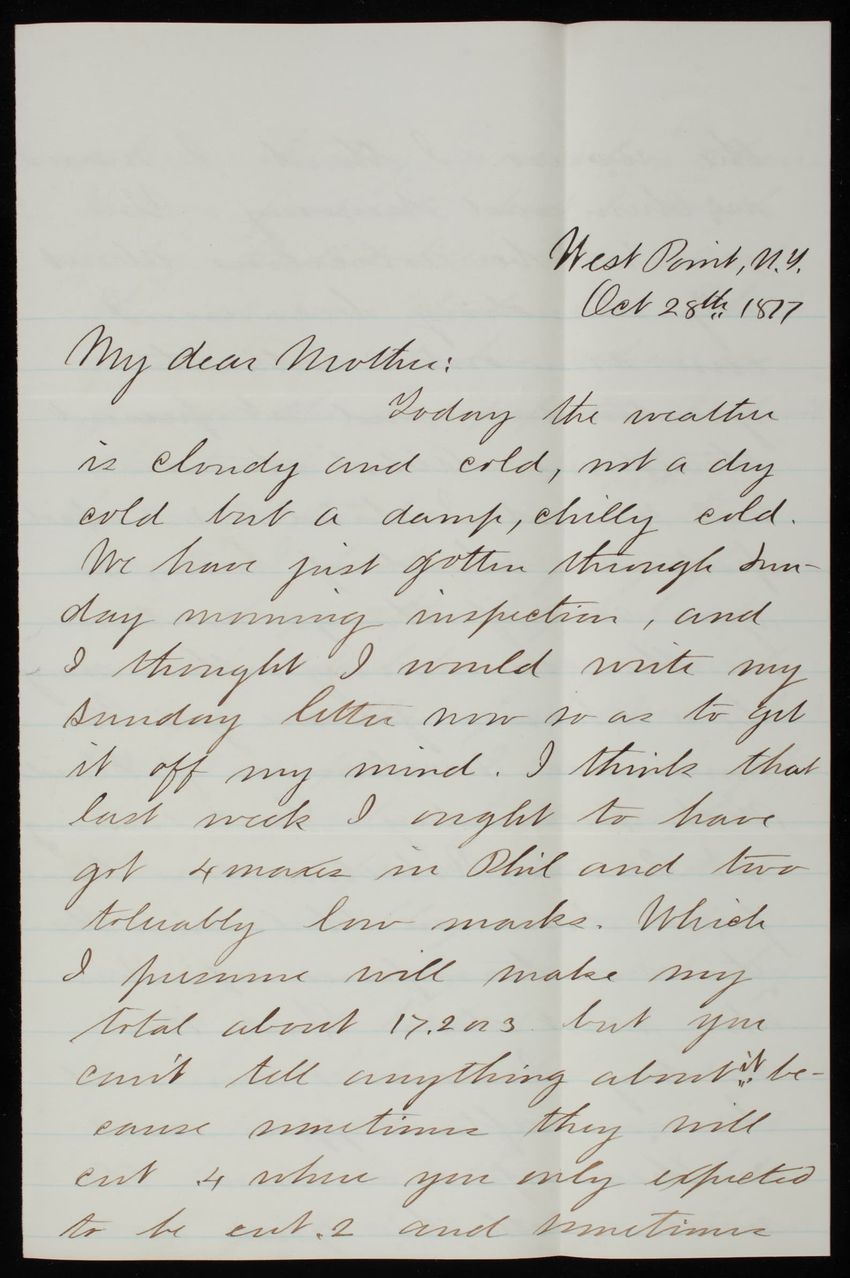 West Point, N.Y.
Oct 28th 1877
My dear Mother:
Today the weather
is cloudy and cold, not a dry
cold but a damp, chilly cold.
We have just gotten through Sun-
day morning inspection, and
I thought I would write my
Sunday letter now so as to get
it off my mind. I think that
last week I ought to have
got 4 maxes in Phil and two
tolerably low marks. Which
I presume will make my
total about 17.2 or 3 but you
can't tell anything about it be-
cause sometimes they will
cut .4 where you only expected
to be cut .2 and sometimes